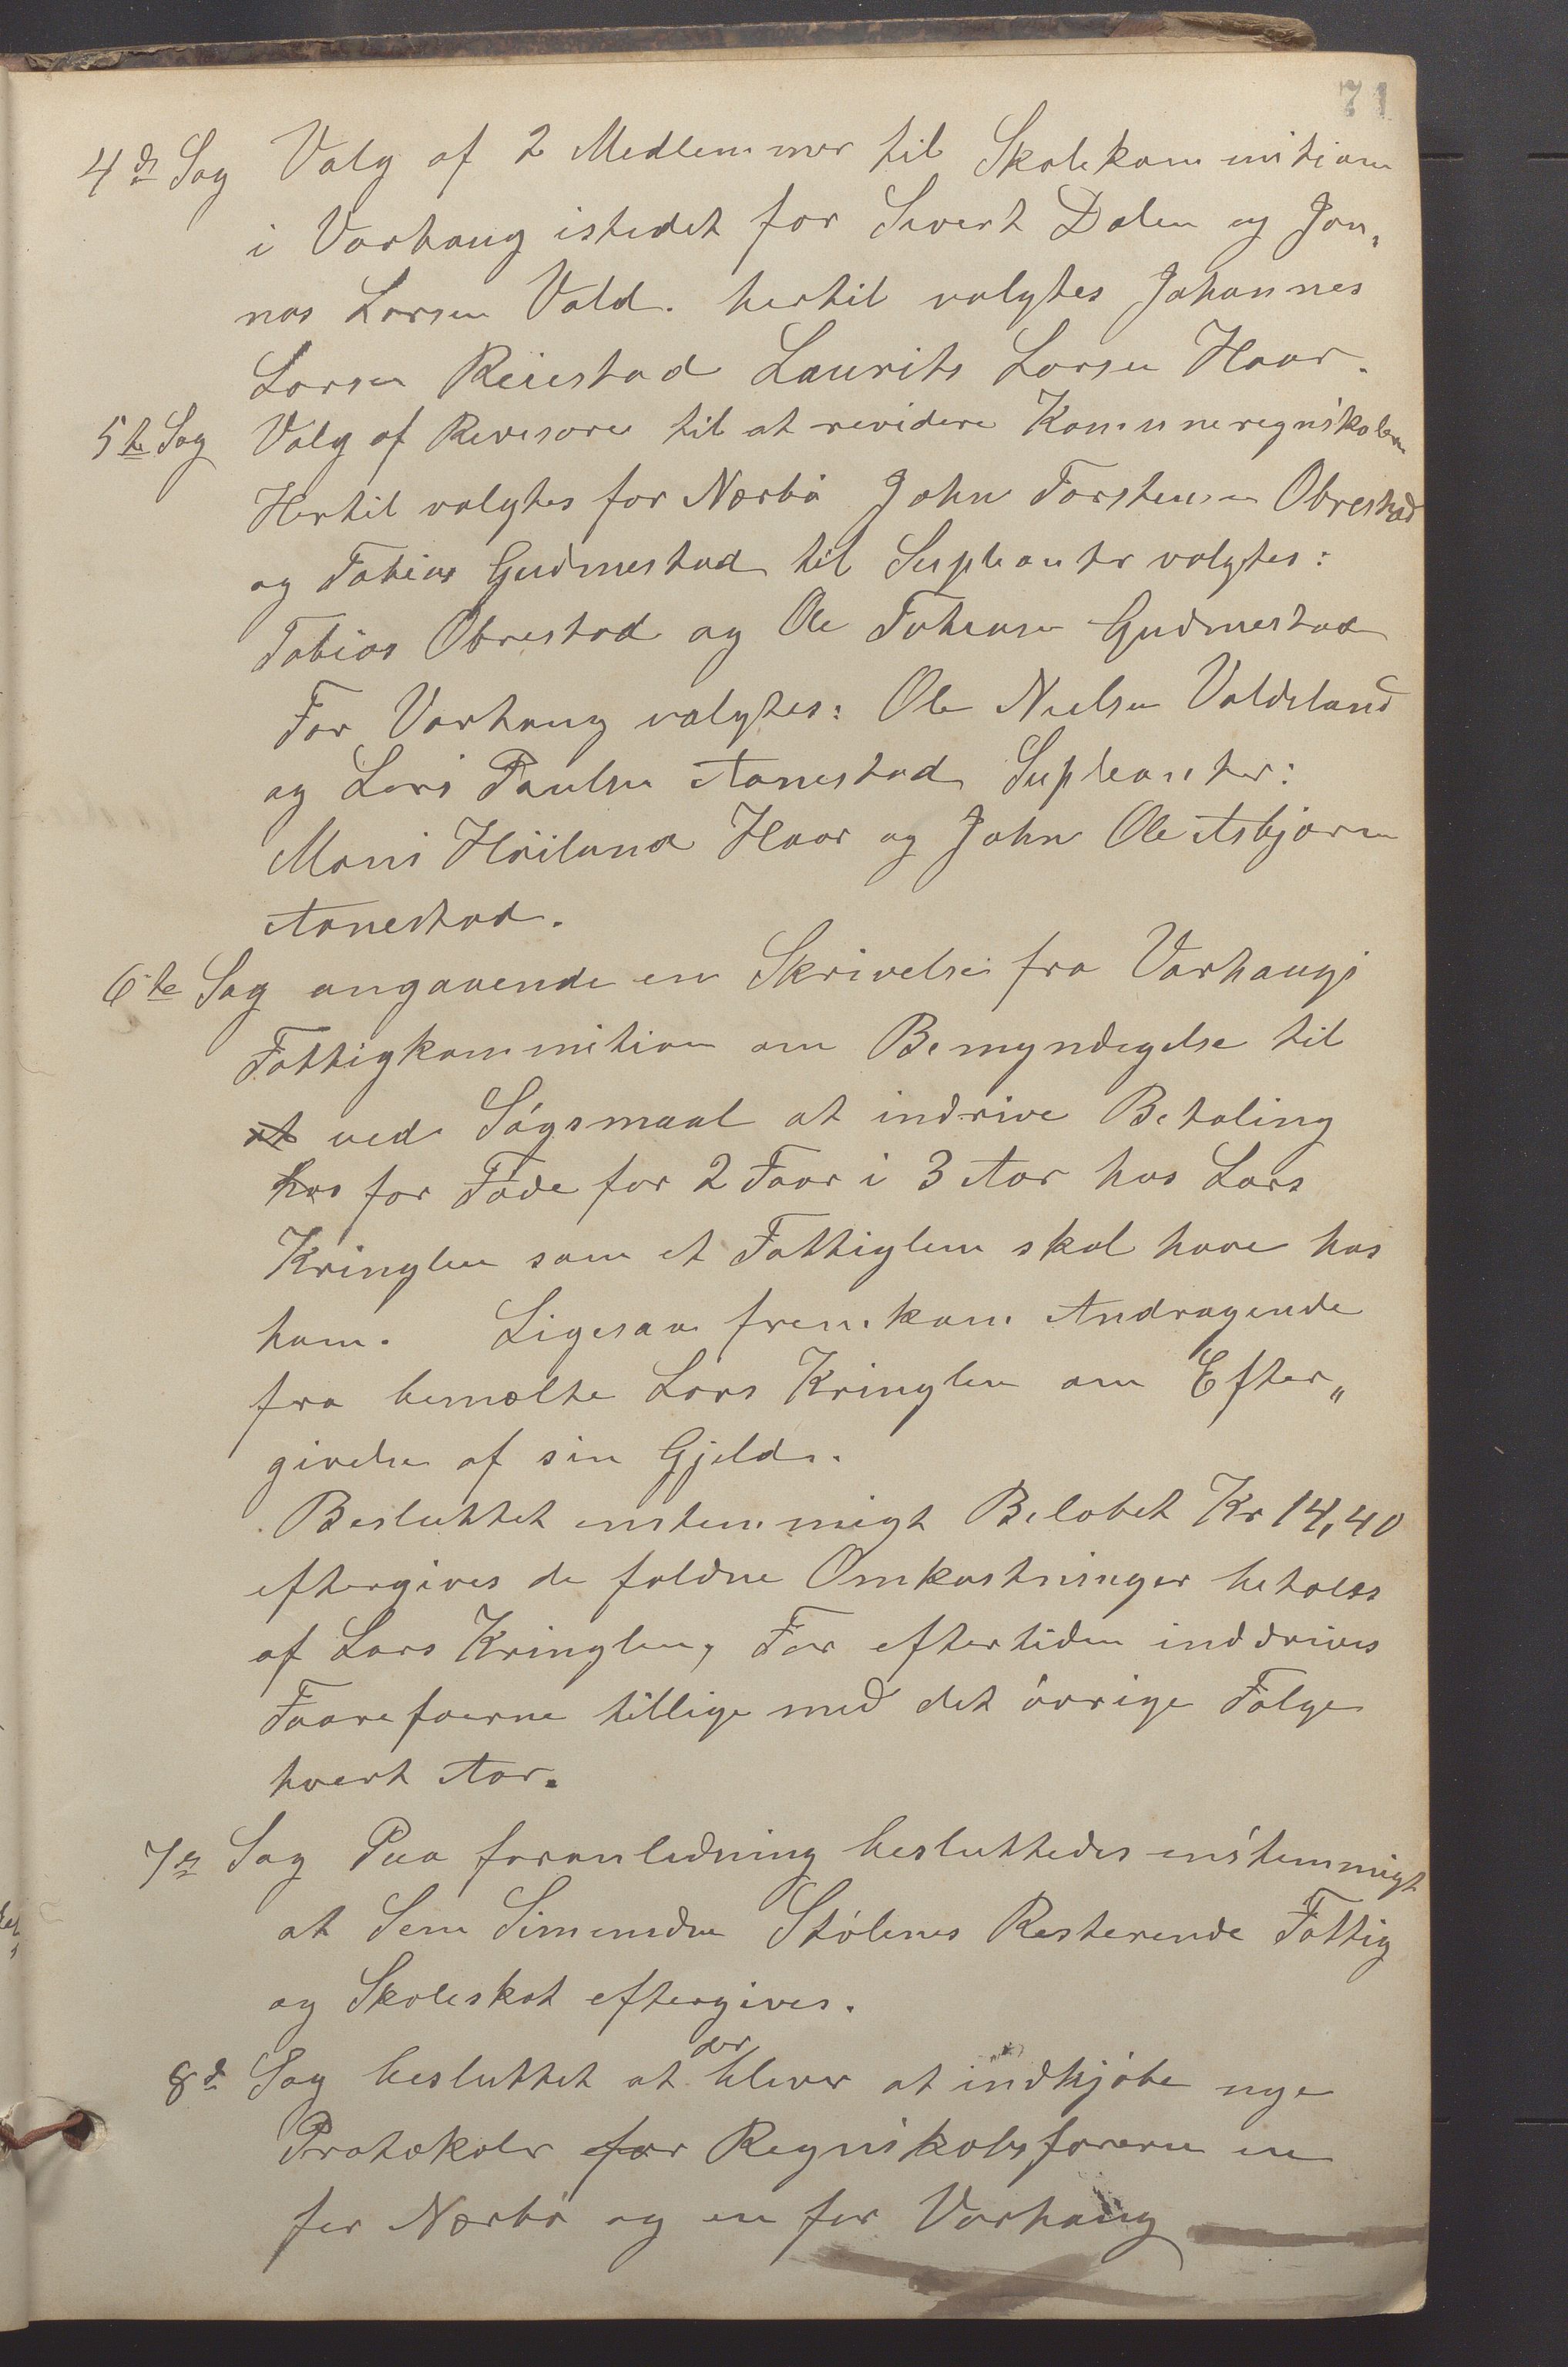 71
4de Sag Valg af 2 Medlemmer til Skolekommitionen
i Varhaug istedet for Sivert Dalen og Jon„
nas Larsen Vold. hertil valgtes Johannes
Larsen Reiestad Laurits Larsen Haar.
5te Sag Valg af Revisorer til at revidere Kommuneregnskaberne
Hertil valgtes for Nærbø John Torstensen Obrestad
og Tobias Gudmestad til Supleanter valgtes:
Tobias Obrestad og Ole Tobiasen Gudmestad
For Varhaug valgtes: Ole Nielsen Voldsland
og Lars Paulsen Aanestad Supleanter:
Mons Höiland Haar og John Ole Asbjørn
Aanestad.
6te Sag angaaende en Skrivelse fra Varhaugs
Fattigkommition om Bemyndigelse til
at ved Søgsmaal at indrive Betaling
hos for Føde for 2 Faar i 3 Aar hos Lars
Kringlen som et Fattiglem skal have hos
ham. Ligesaa fremkom Andragende
fra bemælte Lars Kringlen om Efter„
givelse af sin Gjeld.
Besluttet enstemmigt Beløbet Kr 14,40
eftergives de faldne Omkostninger betales
af Lars Kringlen, For eftertiden inddrives
Faarefoerne tillige med det øvrige Følge
hvert Aar.
7de Sag Paa foranledning besluttedes enstemmigt
at Simensdtr Stølenes Resterende Fattig
og Skoleskat eftergives.
8de Sag besluttet at der bliver at indkjøbe nye
Protokoler for Regnskabsføreren en
for Nærbø og en for Varhaug